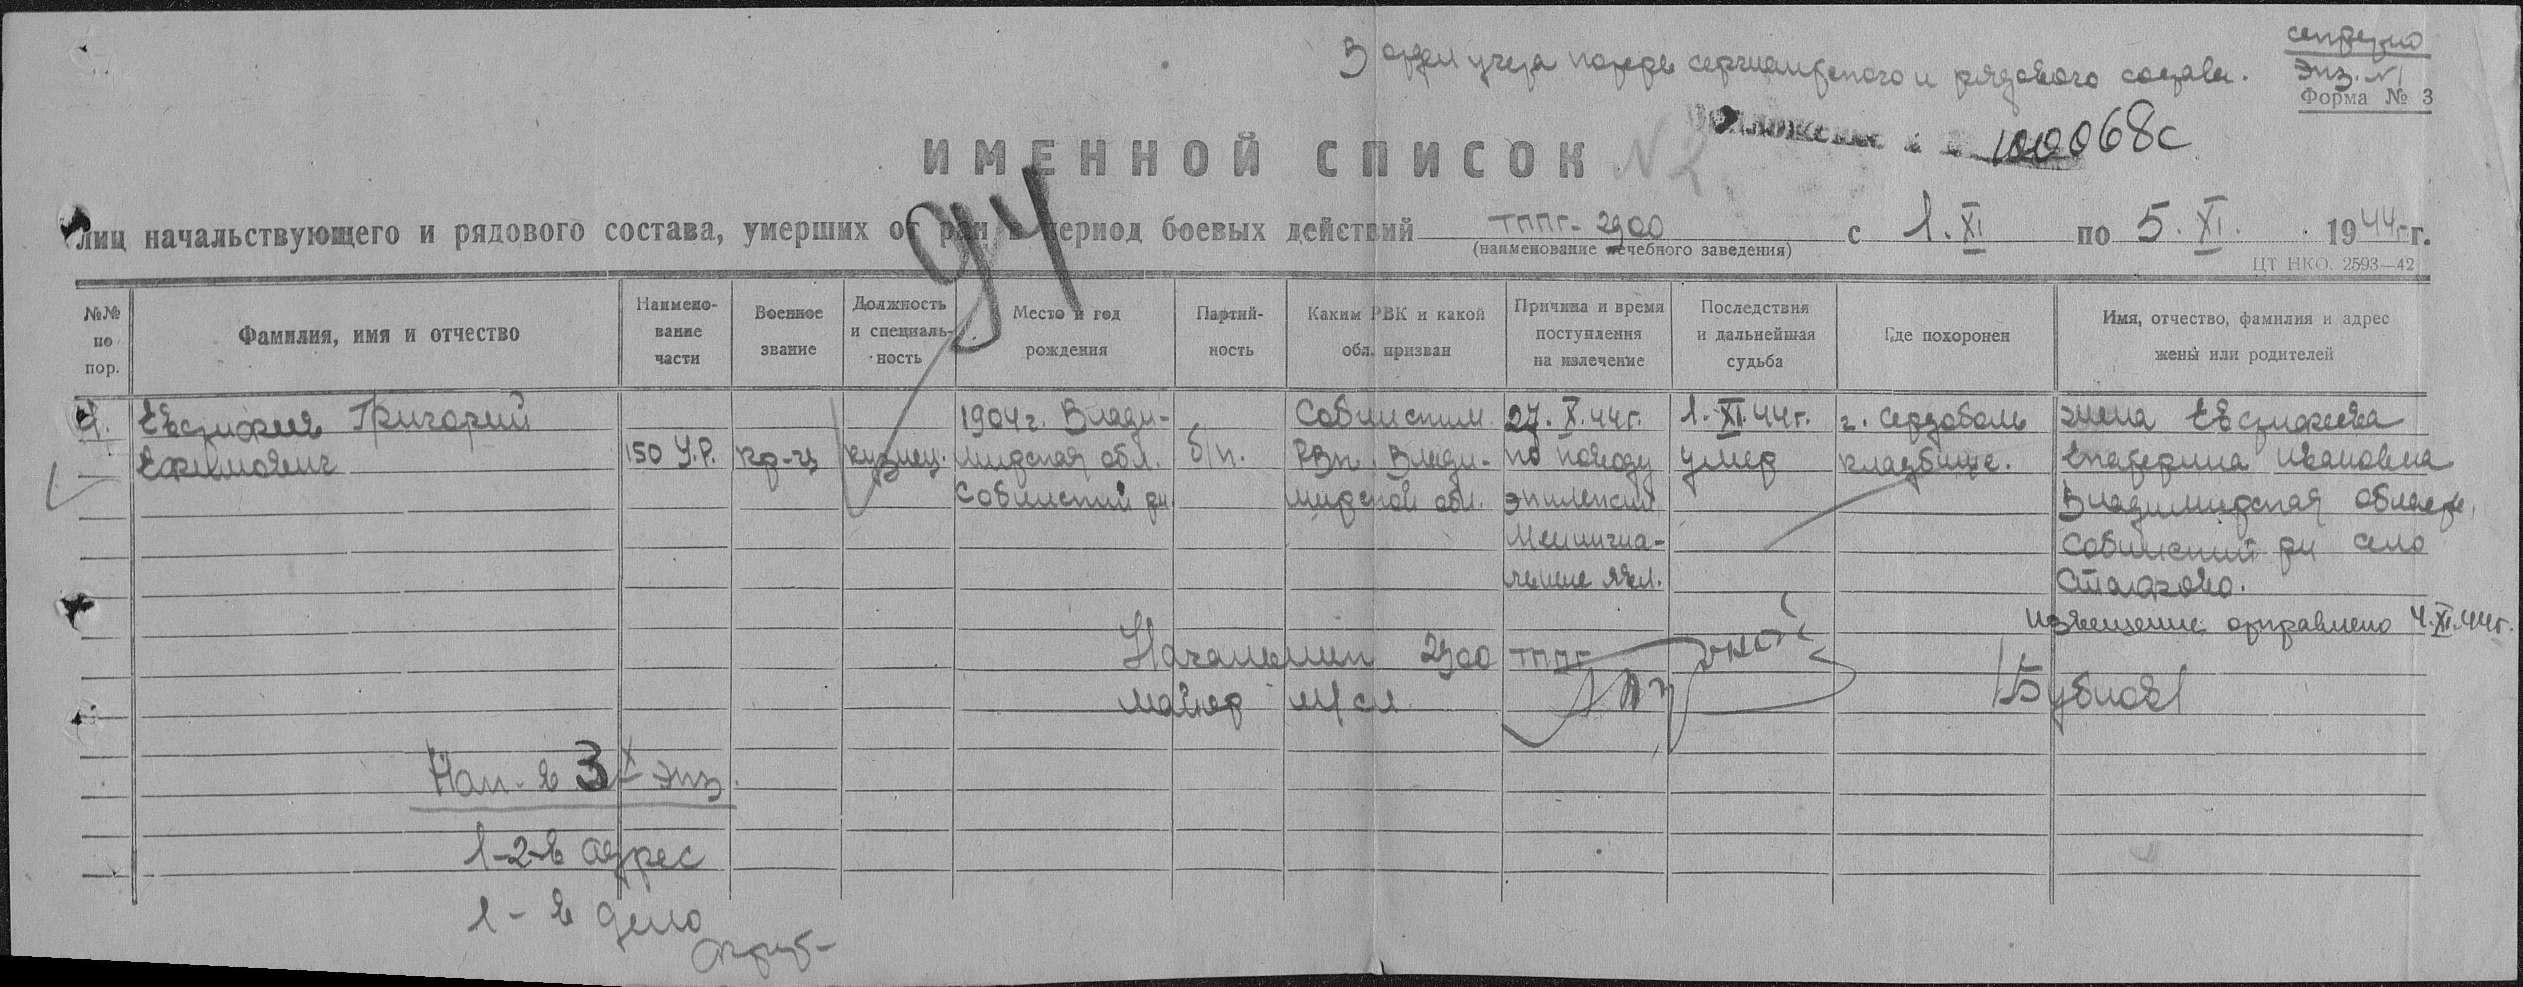 секретно
Экз. №1
Форма № 3
В отдел учета потерь сержантского и рядового состава.
100068с
ИМЕННОЙ СПИСОК
лиц начальствующего и рядового состава, умерших от ран в период боевых действий ТППГ-2900 с 1.XI по 5.XI. 1944г.
(наименование лечебного заведения)
ЦТ НКО. 2593—42
94
№№ по пор.
Фамилия, имя и отчество
Наименование части
Военное звание
Должность и специальность
Место и год рождения
Партийность
Каким РВК и какой обл. призван
Причина и время поступления на излечение
Последствия и дальнейшая судьба
Где похоронен
Имя, отчество, фамилия и адрес жены или родителей
Григорий 1904г. Влади- Собинским 27.X.44г. 1.XI.44г. г. Сердоболь жена
Ефимович 150 У.Р. кр-ц кузнец. мирская обл. б/п. РВк Влади- по поводу умер кладбище. Екатерина Ивановна
Собинский рн мирской обл. эпилепсии Владимирская область,
Собинский рн село
явл.
Извещение отправлено 4.XI.44г.
Начальник 2900 ТППГ
майор м/сл Бубнов
Нап. в 3х экз.
1-2-в адрес
1-в дело